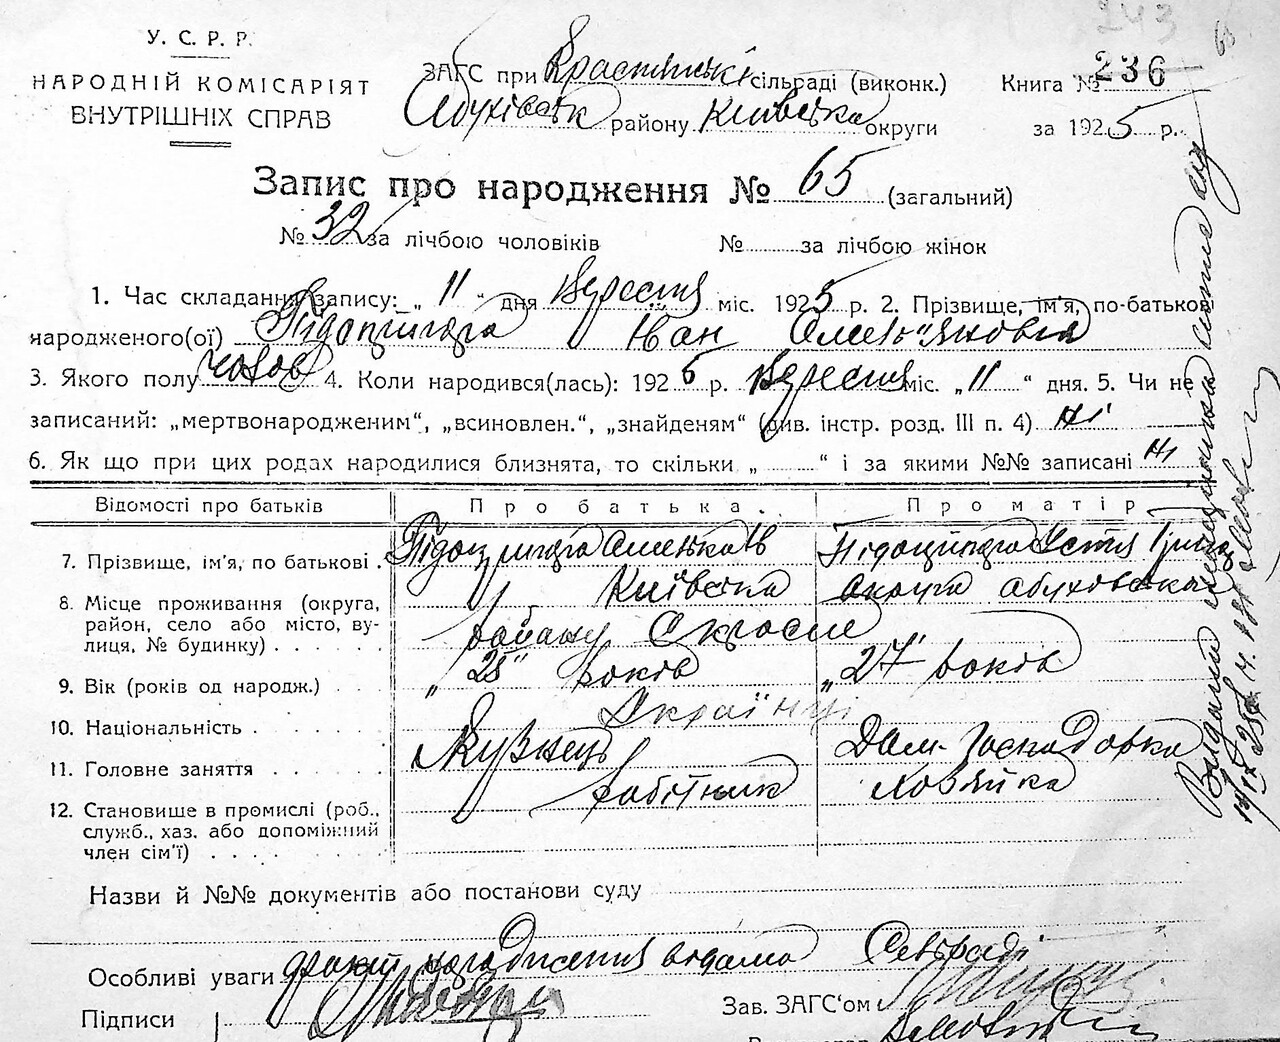 243
У. С. Р. Р.
НАРОДНІЙ КОМІСАРІЯТ
ВНУТРІШНІХ СПРАВ
ЗАГС при Краснянські сільраді (виконк.)
Обухівськ району Київська округи
Книга № 236
за 1925 р.
Запис про народження № 65 (загальний)
№ 32 за лічбою чоловіків № за лічбою жінок
1. Час складання запису: „ 11 " дня Вересня міс. 1925 р. 2. Прізвище, ім'я, по-батькові
народженого(ої) Підопригора Іван Омельянович
3. Якого полу чолов 4. Коли народився(лась): 1925 р. Вересня міс. „ 11 " дня. 5. Чи не
записаний: „мертвонародженим", „всиновлен.", „знайденям" (див. інстр. розд. III п. 4) ні
6. Як що при цих родах народилися близнята, то скільки „ " і за якими №№ записані ні
Відомості про батьків Про батька. Про матір
7. Прізвище, ім'я, по батькові. Підопригора Підопригора Устя Григ
8. Місце проживання (округа, Київська округа Обуховська
район, село або місто, ву- району С Красне
лиця, № будинку)
9. Вік (років од народж.) „28" років „27" років
10. Національність Українці
11. Головне заняття Кузнець Дом. Господарка
12. Становище в промислі (роб., робітник хозяйка
служб., хаз. або допоміжний
член сім'ї)
Назви й №№ документів або постанови суду
Особливі уваги народження Сільраді
Підписи
Зав. ЗАГС'ом